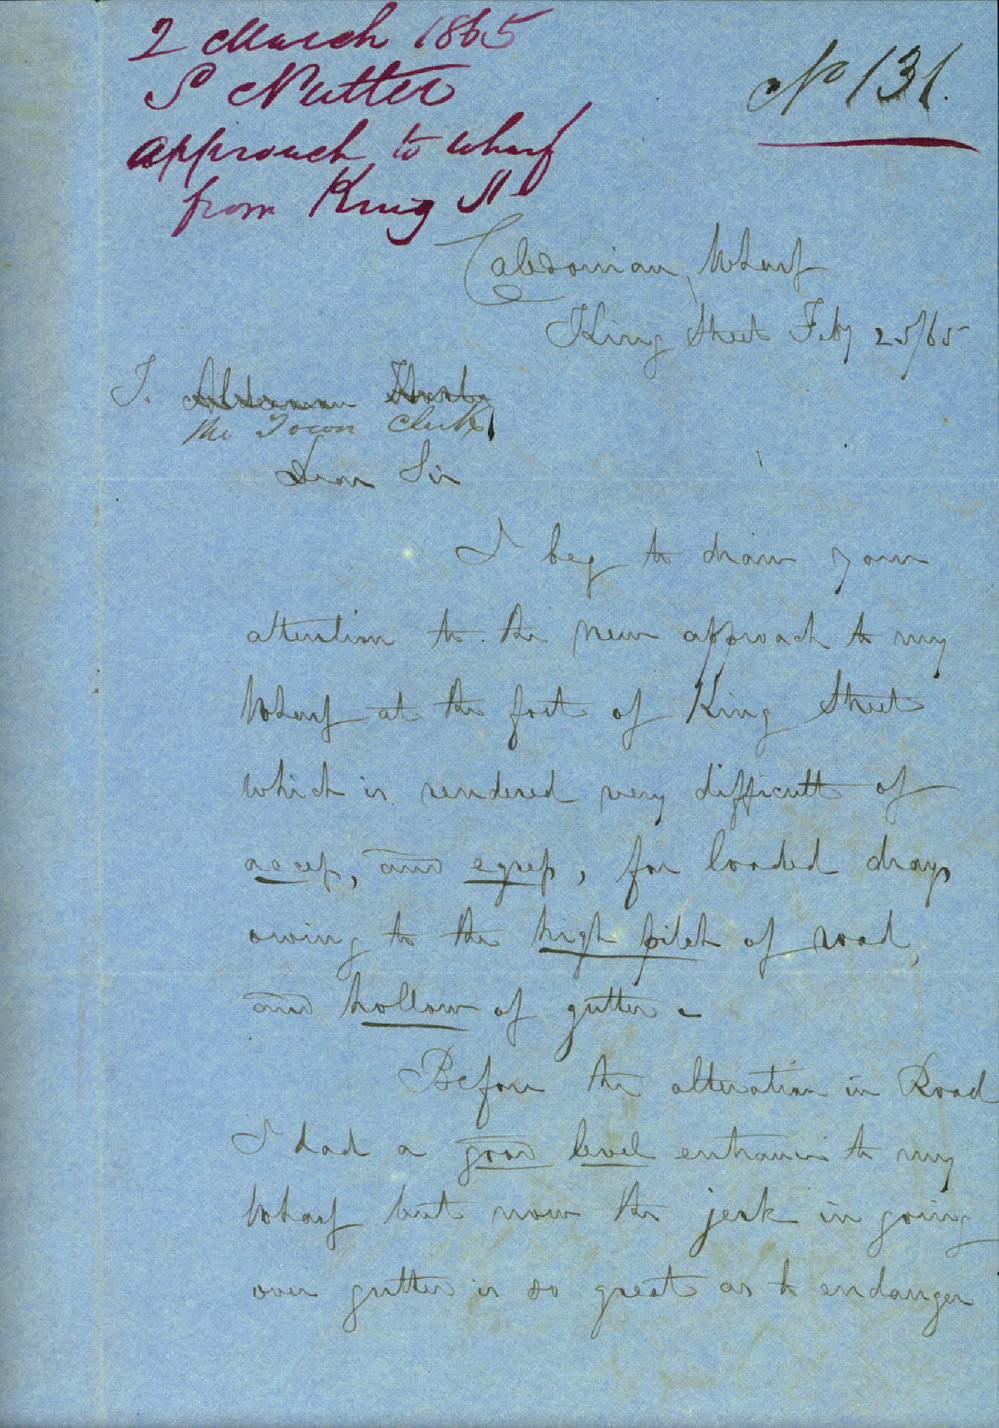 2 March 1865
S Nutter
approach to wharf
from King St
No 131.
Caledonian Wharf
King Street Feby 25/65
T. Alderman
The Town Clerk
Dear Sir
I beg to draw your
attention to the new approach to my
Wharf at the foot of King Street
which is rendered very difficult of
access, and egress, for loaded drays
owing to the high pitch of road,
and hollow of gutter -
Before the alteration in Road
I had a good level entrance to my
Wharf but now the jerk in going
over gutter is so great as to endanger